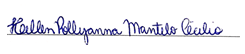 Hellen Pollyanna Mantelo Cecilio